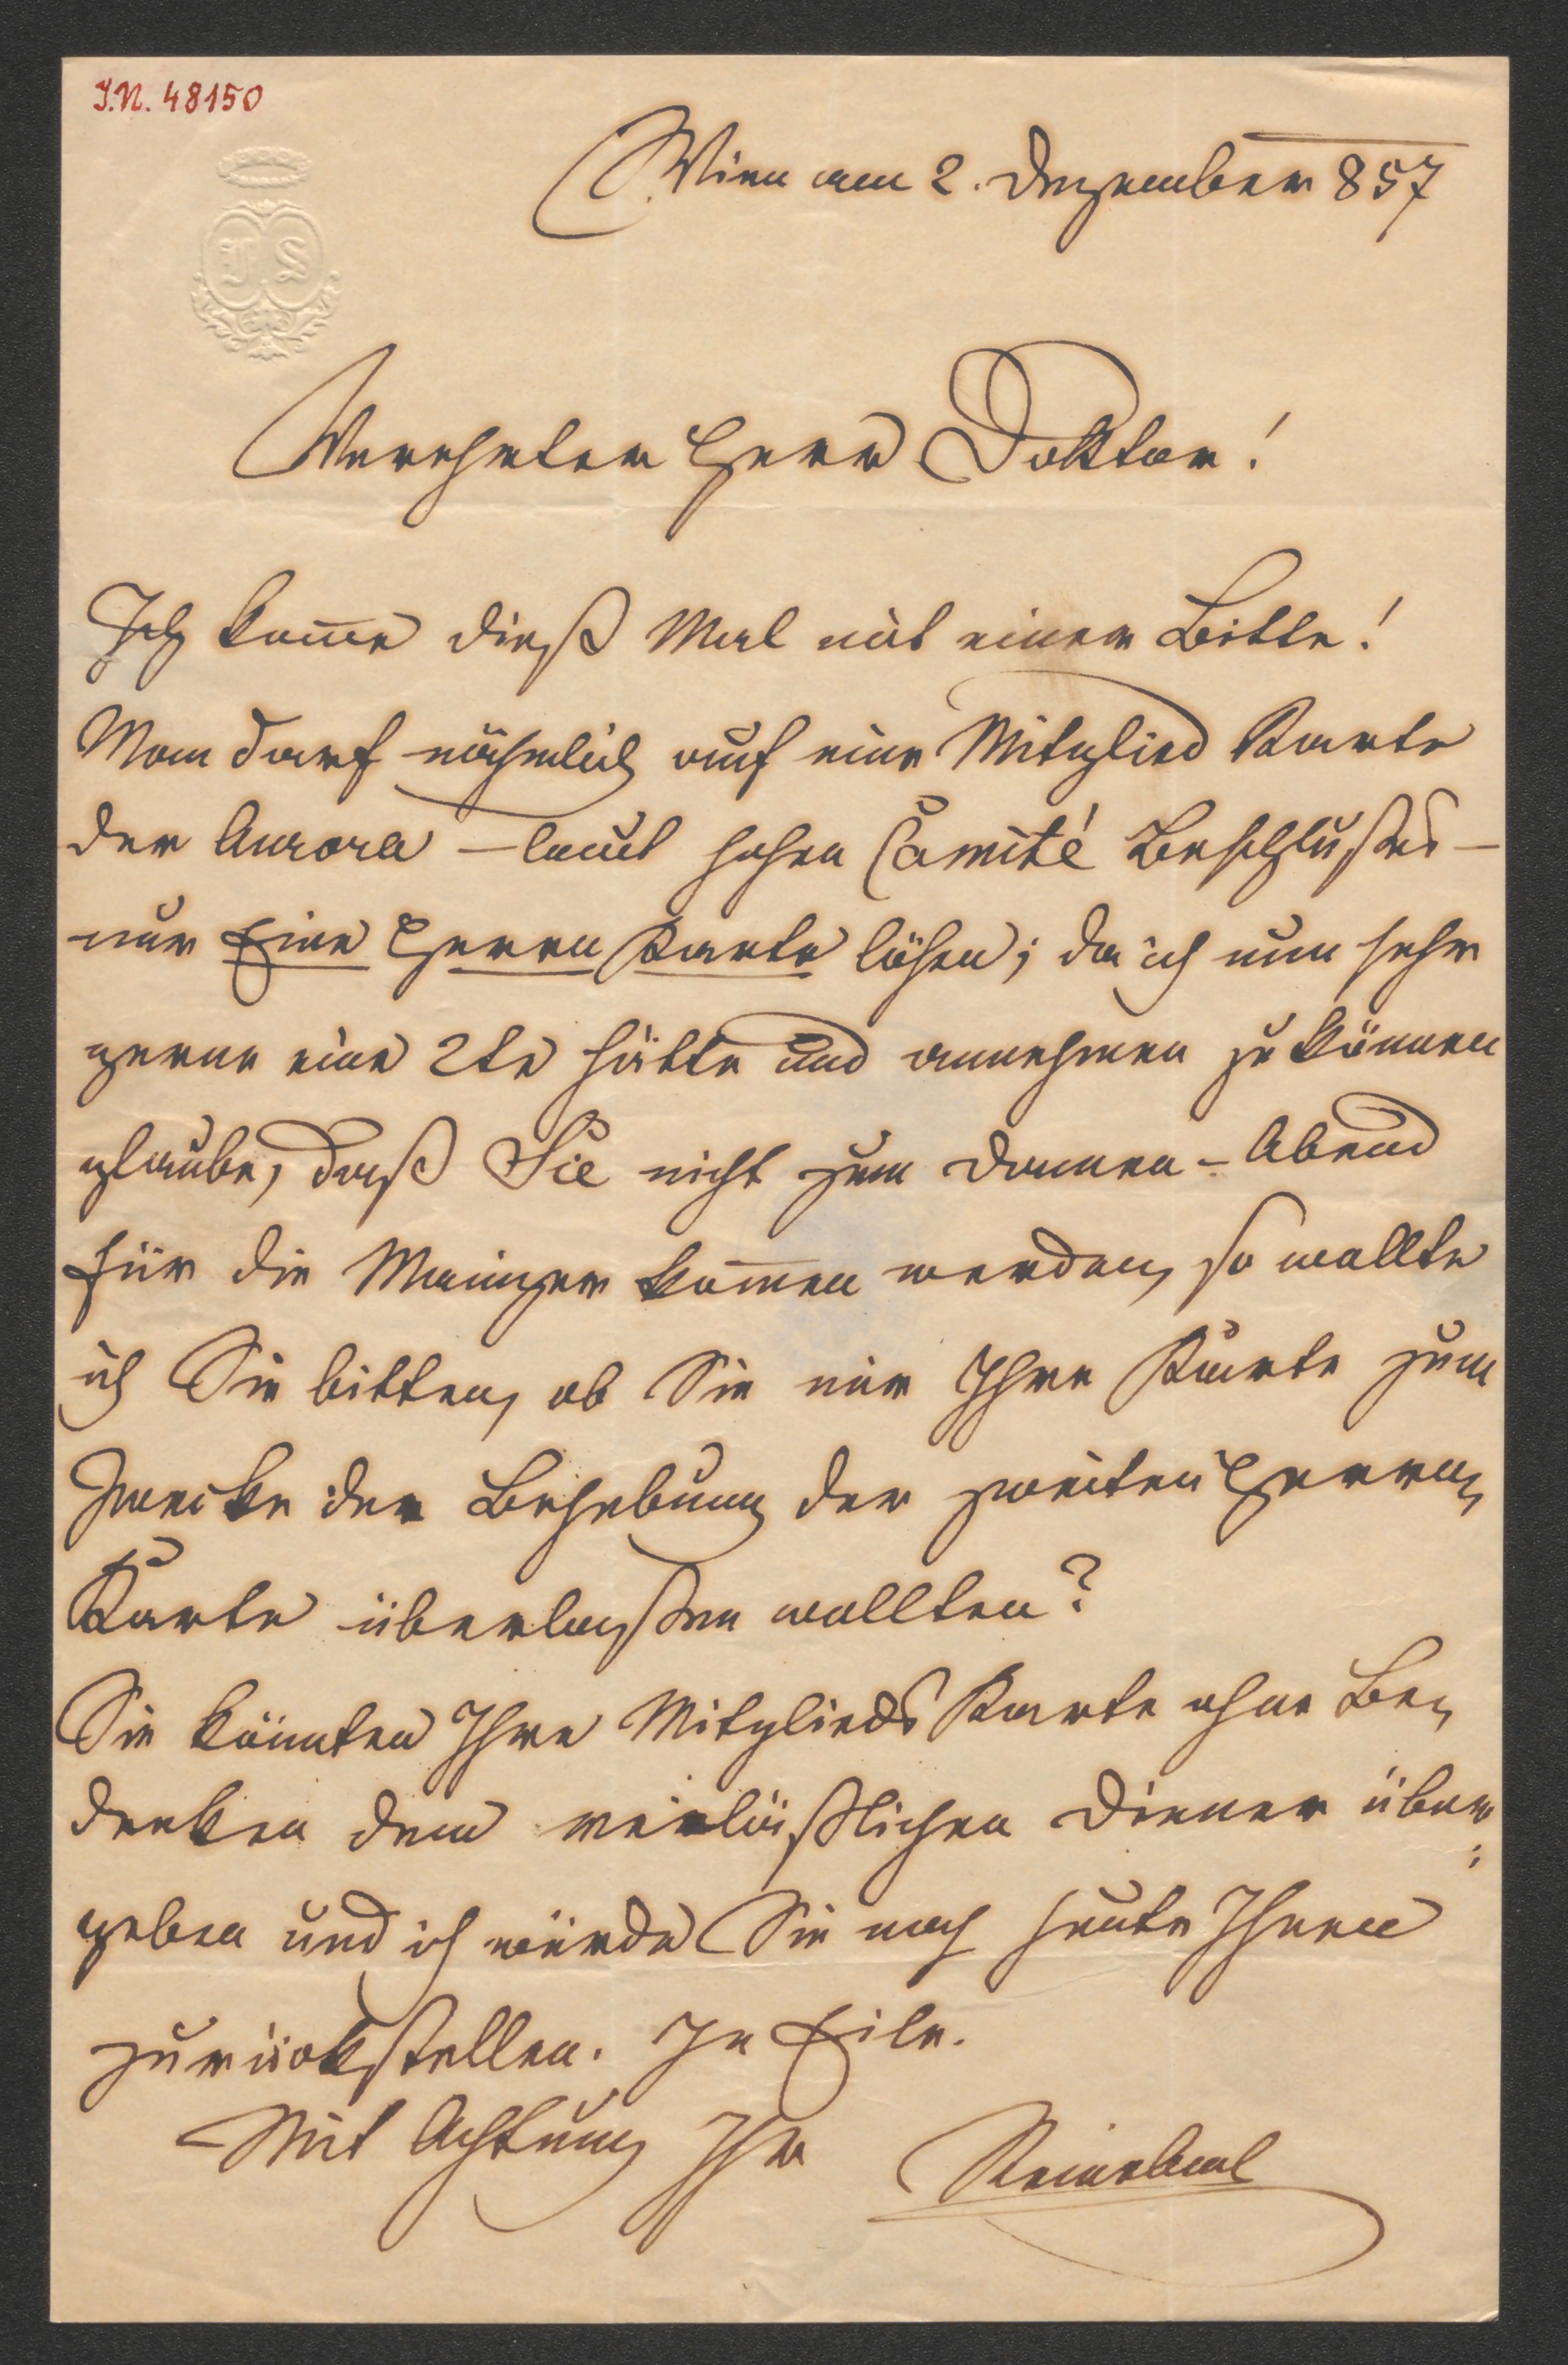 I.N. 48150
Wien am 2. Dezember 857
J S
Verehrter Herr Doktor!
Ich kom̅e dieß Mal mit einer Bitte!
Man darf nähmlich auf eine Mitglied Karte
der Aurora – laut hohen Comité Beschlußes –
nur Eine Herrn Karte lösen; da ich nun sehr
gerne eine 2te hätte und annehmen zu können
glaube, daß Sie nicht zum Damen-Abend
für die Mainzer kom̅en werden, so wollte
ich Sie bitten, ob Sie mir Ihre Karte zum
Zwecke der Behebung der zweiten Herren
Karte überlaßen wollten?
Sie könnten Ihre Mitglieds Karte ohne Be„
denken dem verläßlichen Diener über„
geben und ich würde Sie noch heute Ihnen
zurückstellen. In Eile.
Mit Achtung Ihr